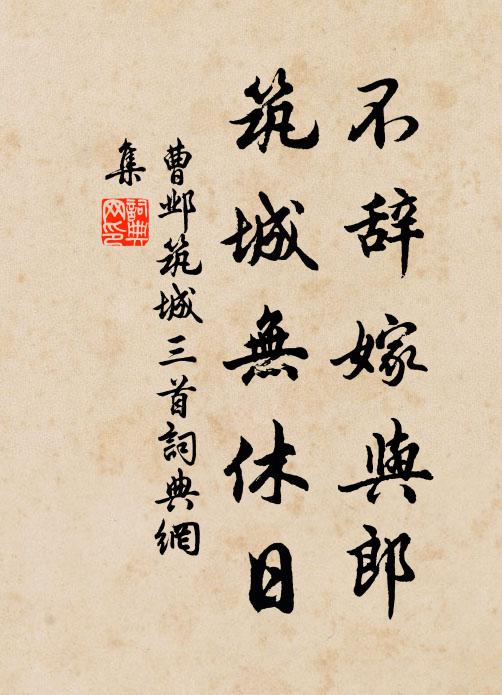 不辞嫁與郎
筑城無休日
曹邺筑城三首詞典網
集
詞典
网印